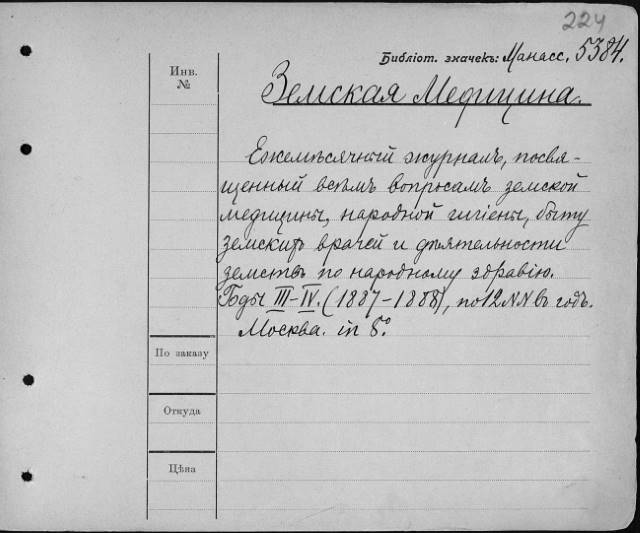 224
Библіот. значекъ: Манасс. 5384.
Инв.
№
Земская Медицина.
Ежемѣсячный журналъ, посвя-
щенный всѣмъ вопросамъ земской
медицины, народной гигіены, быту
земскихъ врачей и дѣятельности
земствъ по народному здравію.
Годы III–IV. (1887–1888), по 12 NN въ годъ.
Москва. in 8°.
По заказу
Откуда
Цѣна